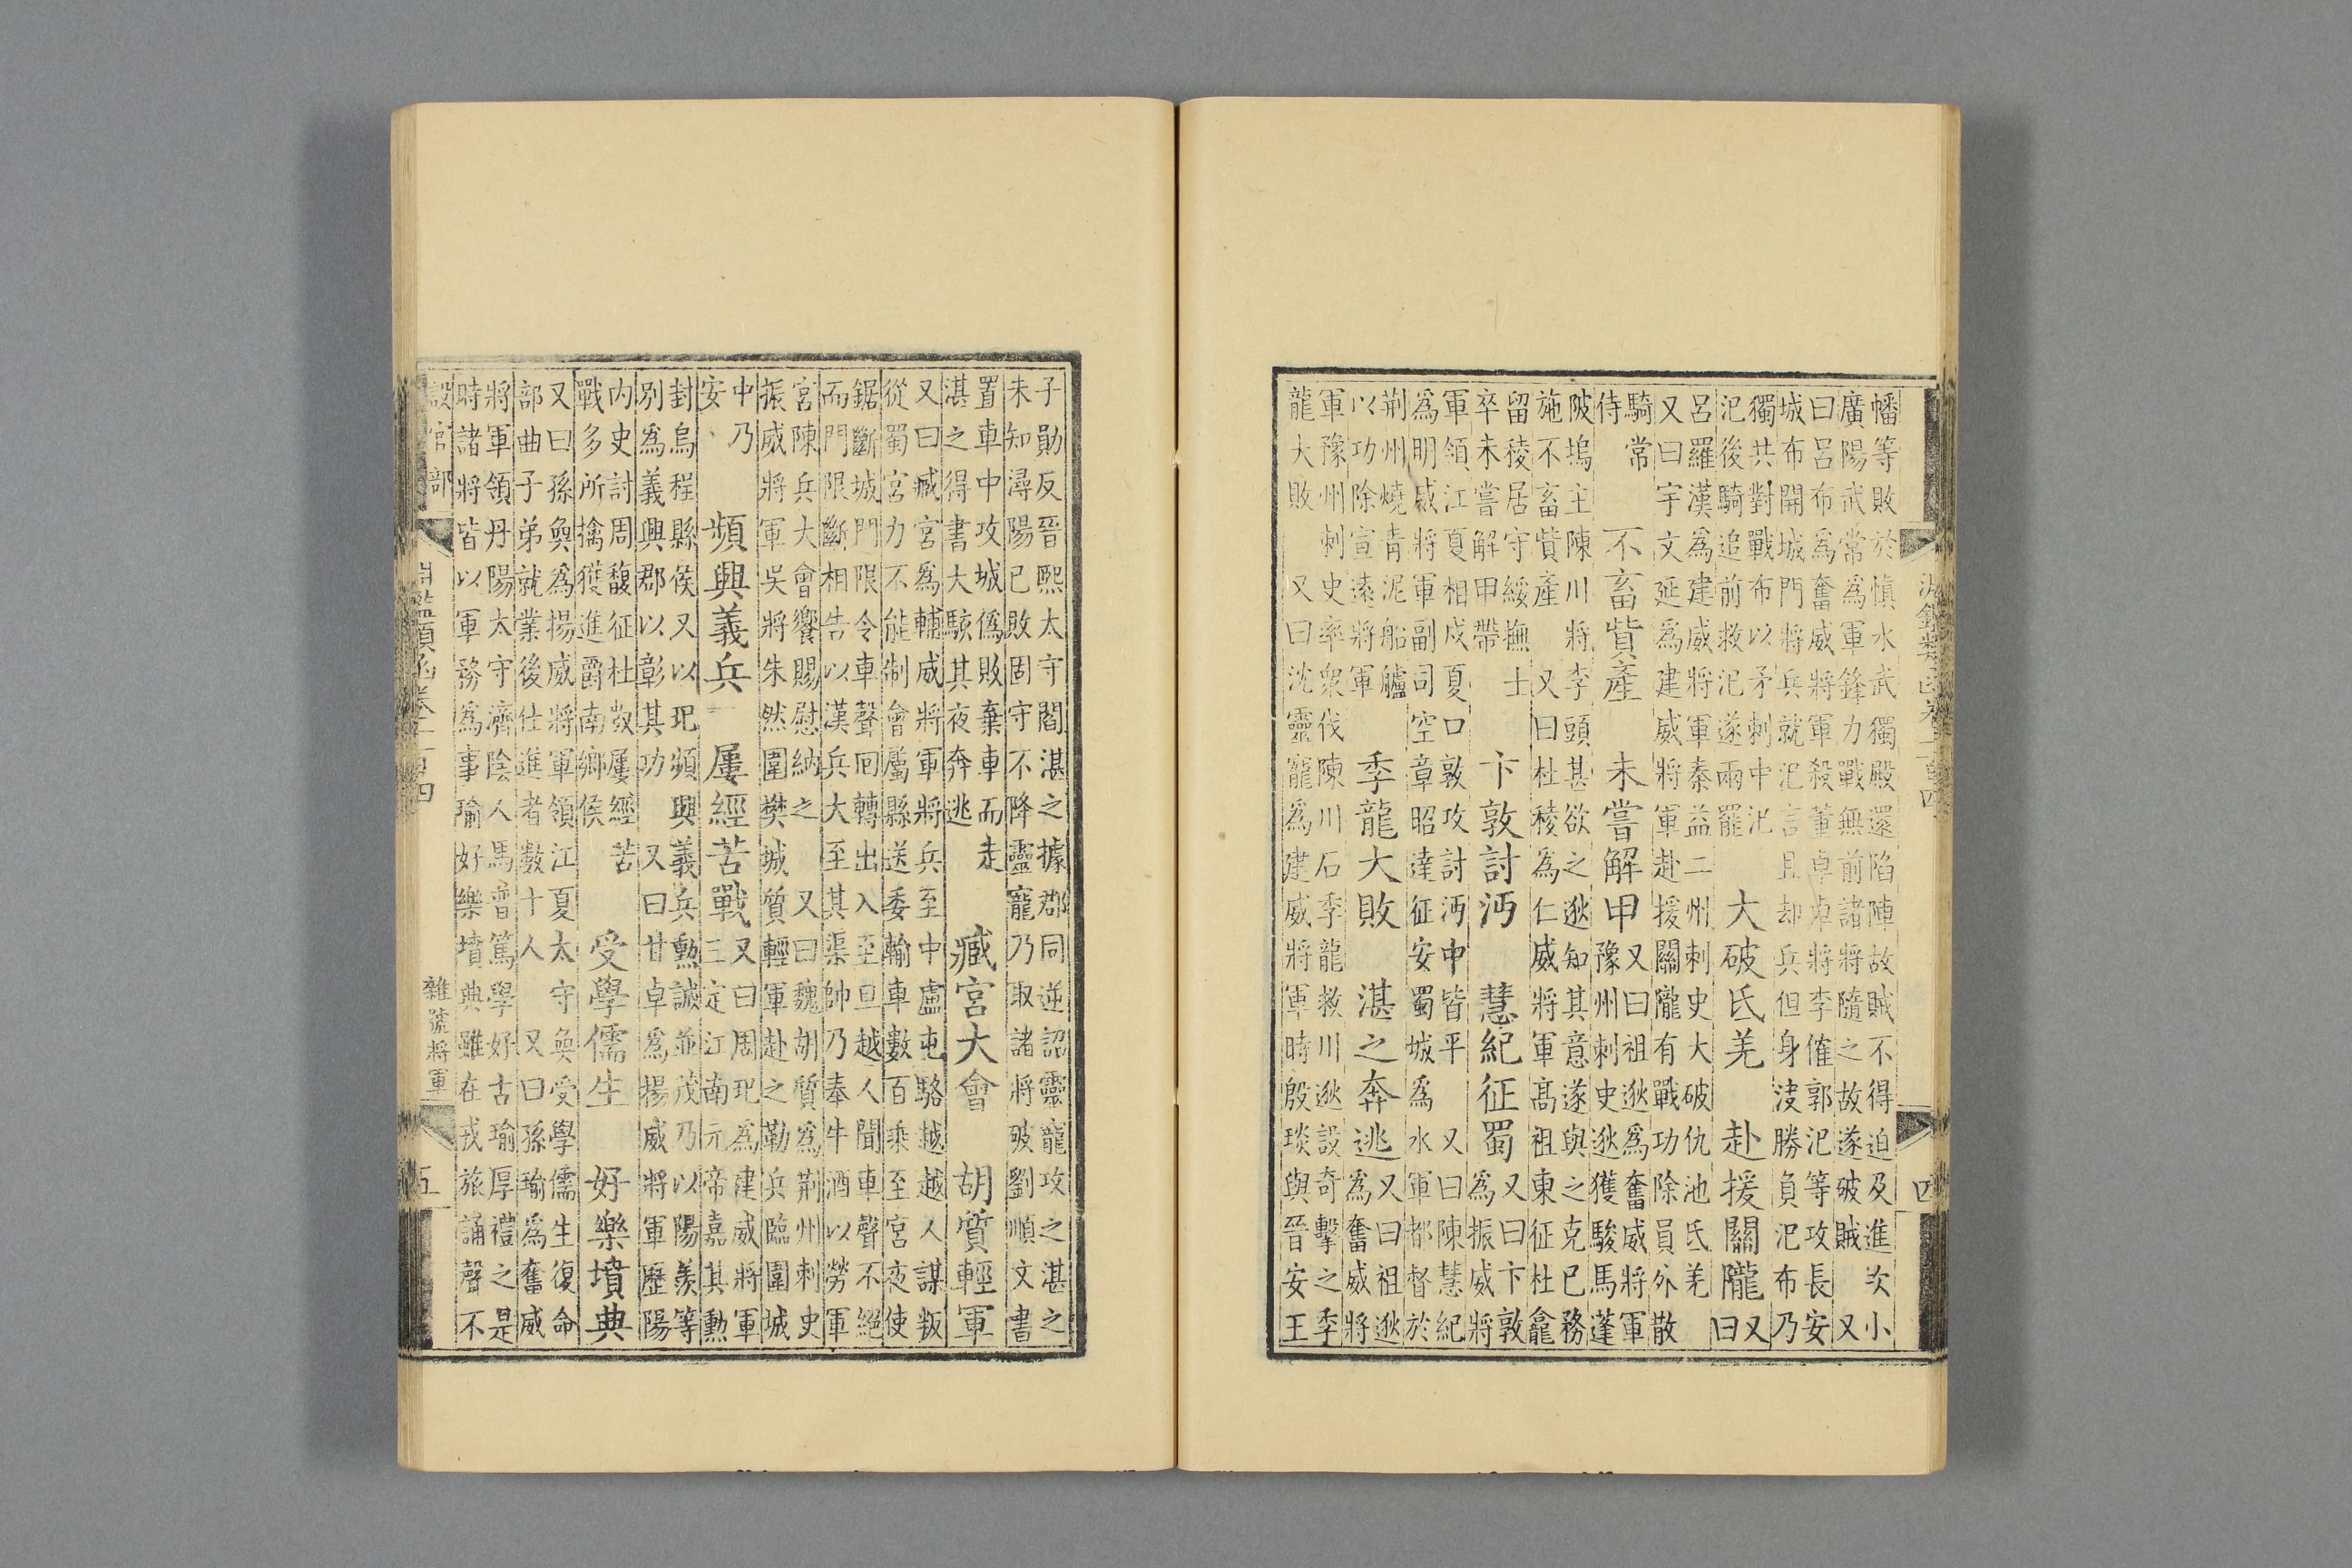 淵鑑類函卷一百四
四
幡等敗於慎水武獨殿還陷陣故賊不得迫及進次小
廣陽武常爲軍鋒力戰無前諸將隨之故遂破賊 又
曰呂布爲奮威將軍殺董卓卓將李傕郭汜等攻長安
城布開城門將兵就汜言且却兵但身決勝負汜布乃
獨共對戰布以矛刺中汜
汜後騎追前救汜遂兩罷
大破氐羌 赴援關隴
又
曰
呂羅漢爲建威將軍秦益二州刺史大破仇池氐羌
又曰宇文延爲建威將軍赴援關隴有戰功除員外散
騎常
侍
不畜貲產 未嘗解甲
又曰祖逖爲奮威將軍
豫州刺史逖獲駿馬蓬
陂塢主陳川將李頭甚欲之逖知其意遂與之克已務
施不畜貲產 又曰杜稜爲仁威將軍高祖東征杜龕
留稜居守綏撫士
卒未嘗解甲帶
卞敦討沔 慧紀征蜀
又曰卞敦
爲振威將
軍領江夏相戍夏口敦攻討沔中皆平 又曰陳慧紀
爲明威將軍副司空章昭達征安蜀城爲水軍都督於
荆州燒青泥船艫
以功除宣遠將軍
季龍大敗 湛之奔逃
又曰祖逖
爲奮威將
軍豫州刺史率衆伐陳川石季龍救川逖設奇擊之季
龍大敗 又曰沈靈寵爲建威將軍時殷琰與晉安王
子勛反晉熙太守閻湛之據郡同逆詔靈寵攻之湛之
朱知潯陽已敗固守不降靈寵乃取諸將破劉順文書
置車中攻城僞敗棄車而走
湛之得書大駭其夜奔逃
臧宮大會 胡質輕軍
又曰臧宮爲輔威將軍將兵至中盧屯駱越越人謀叛
從蜀宮力不能制會屬縣送委輸車數百乘至宮夜使
鋸斷城門限令車聲回轉出入至旦越人聞車聲不絕
而門限斷相告以漢兵大至其渠帥乃奉牛酒以勞軍
宮陳兵大會饗賜慰納之 又曰魏胡質爲荆州刺史
振威將軍吳將朱然圍樊城質輕軍赴之勒兵臨圍城
中乃
安
頻興義兵 屢經苦戰
又曰周玘爲建威將軍
三定江南元帝嘉其勳
封烏程縣侯又以玘頻興義兵勲誠並茂乃以陽羡等
別爲義興郡以彰其功 又曰甘卓爲揚威將軍歷陽
内史討周馥征杜弢屢經苦
戰多所擒獲進爵南鄉侯
受學儒生 好樂墳典
又曰孫奐爲揚威將軍領江夏太守奐受學儒生復命
部曲子弟就業後仕進者數十人 又曰孫瑜爲奮威
將軍領丹陽太守濟陰人馬普篤學好古瑜厚禮之是
時諸將皆以軍務爲事瑜好樂墳典雖在戎旅誦聲不
設官部 淵鑑類函卷一百四 雜號將軍 五